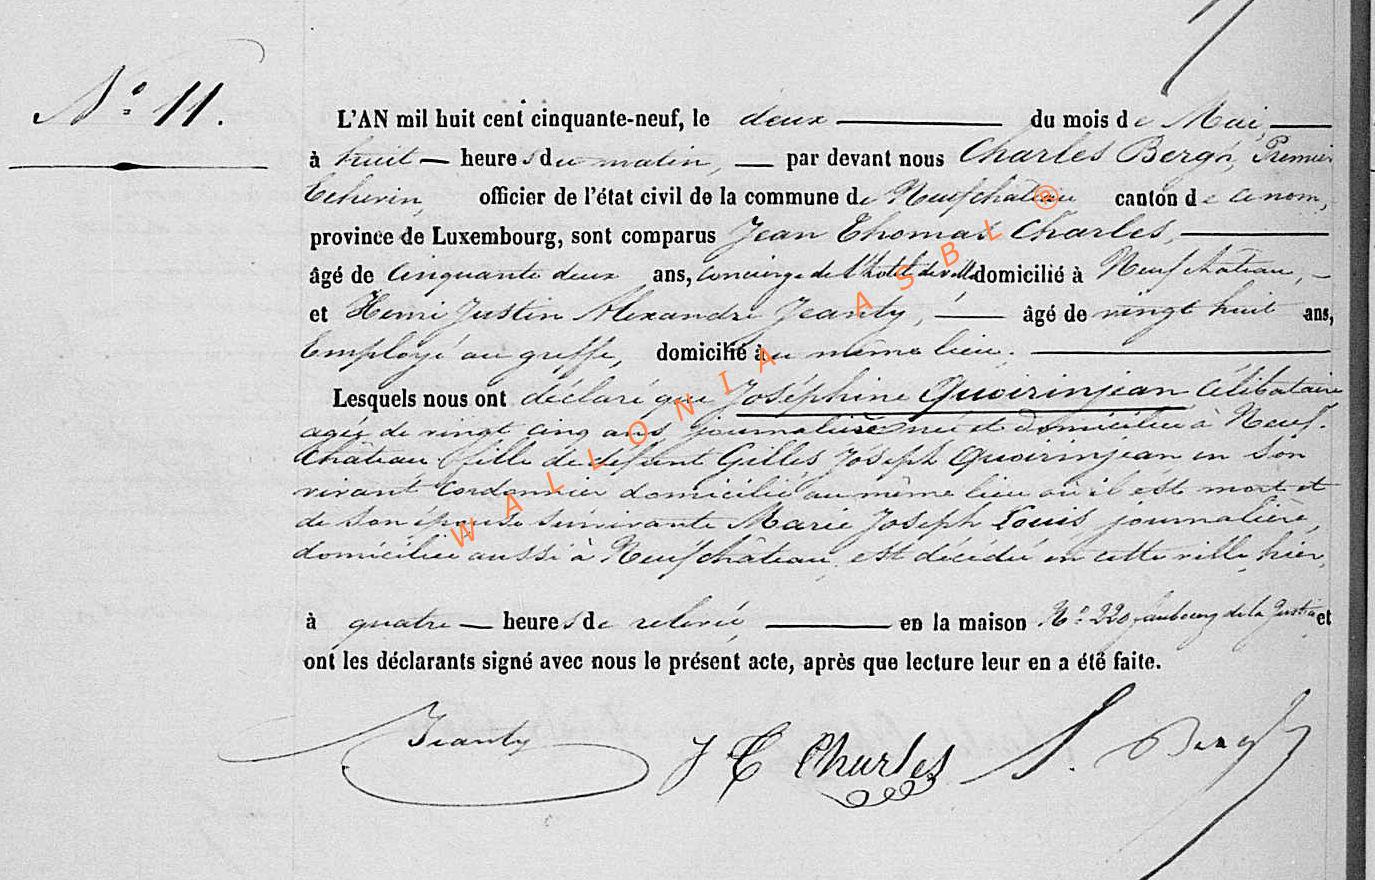 N° 11.
L'AN mil huit cent cinquante-neuf, le deux du mois de Mai,
à huit heures du matin, par devant nous Charles Bergh, Premier
Echevin, officier de l'état civil de la commune de Neufchâteau canton de ce nom,
province de Luxembourg, sont comparus Jean Thomas Charles,
âgé de Cinquante deux ans, concierge de l'hotel de ville domicilié à Neufchateau,
et Henri Justin Alexandre Jeanty, âgé de vingt huit ans,
Employé au greffe, domicilié au même lieu.
Lesquels nous ont déclaré que Joséphine Quoirinjean Célibataire
agée de vingt cinq ans journalière née et domiciliée à Neuf-
château fille de defunt Gilles Joseph Quoirinjean en son
vivant Cordonnier domicilié au même lieu où il est mort et
de son épouse survivante Marie Joseph Louis, journalière,
domiciliée aussi à Neufchâteau, est décédée en cette ville, hier,
à quatre heures de relevée, en la maison N° 229 faubourg de la Justice et
ont les déclarants signé avec nous le présent acte, après que lecture leur en a été faite.
Jeanty J T Charles
WALLONIA ASBL ®